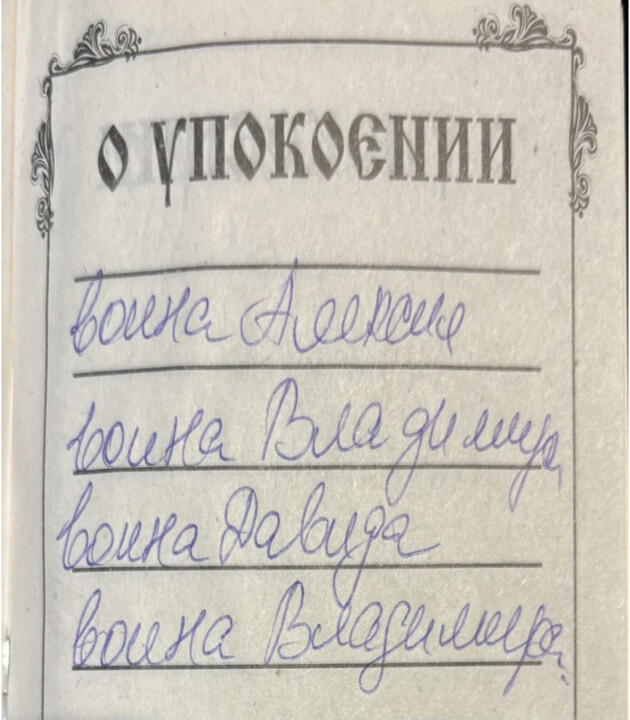 о упокоении
воина Алексия
воина Владимира
воина Давида
воина Владимира.